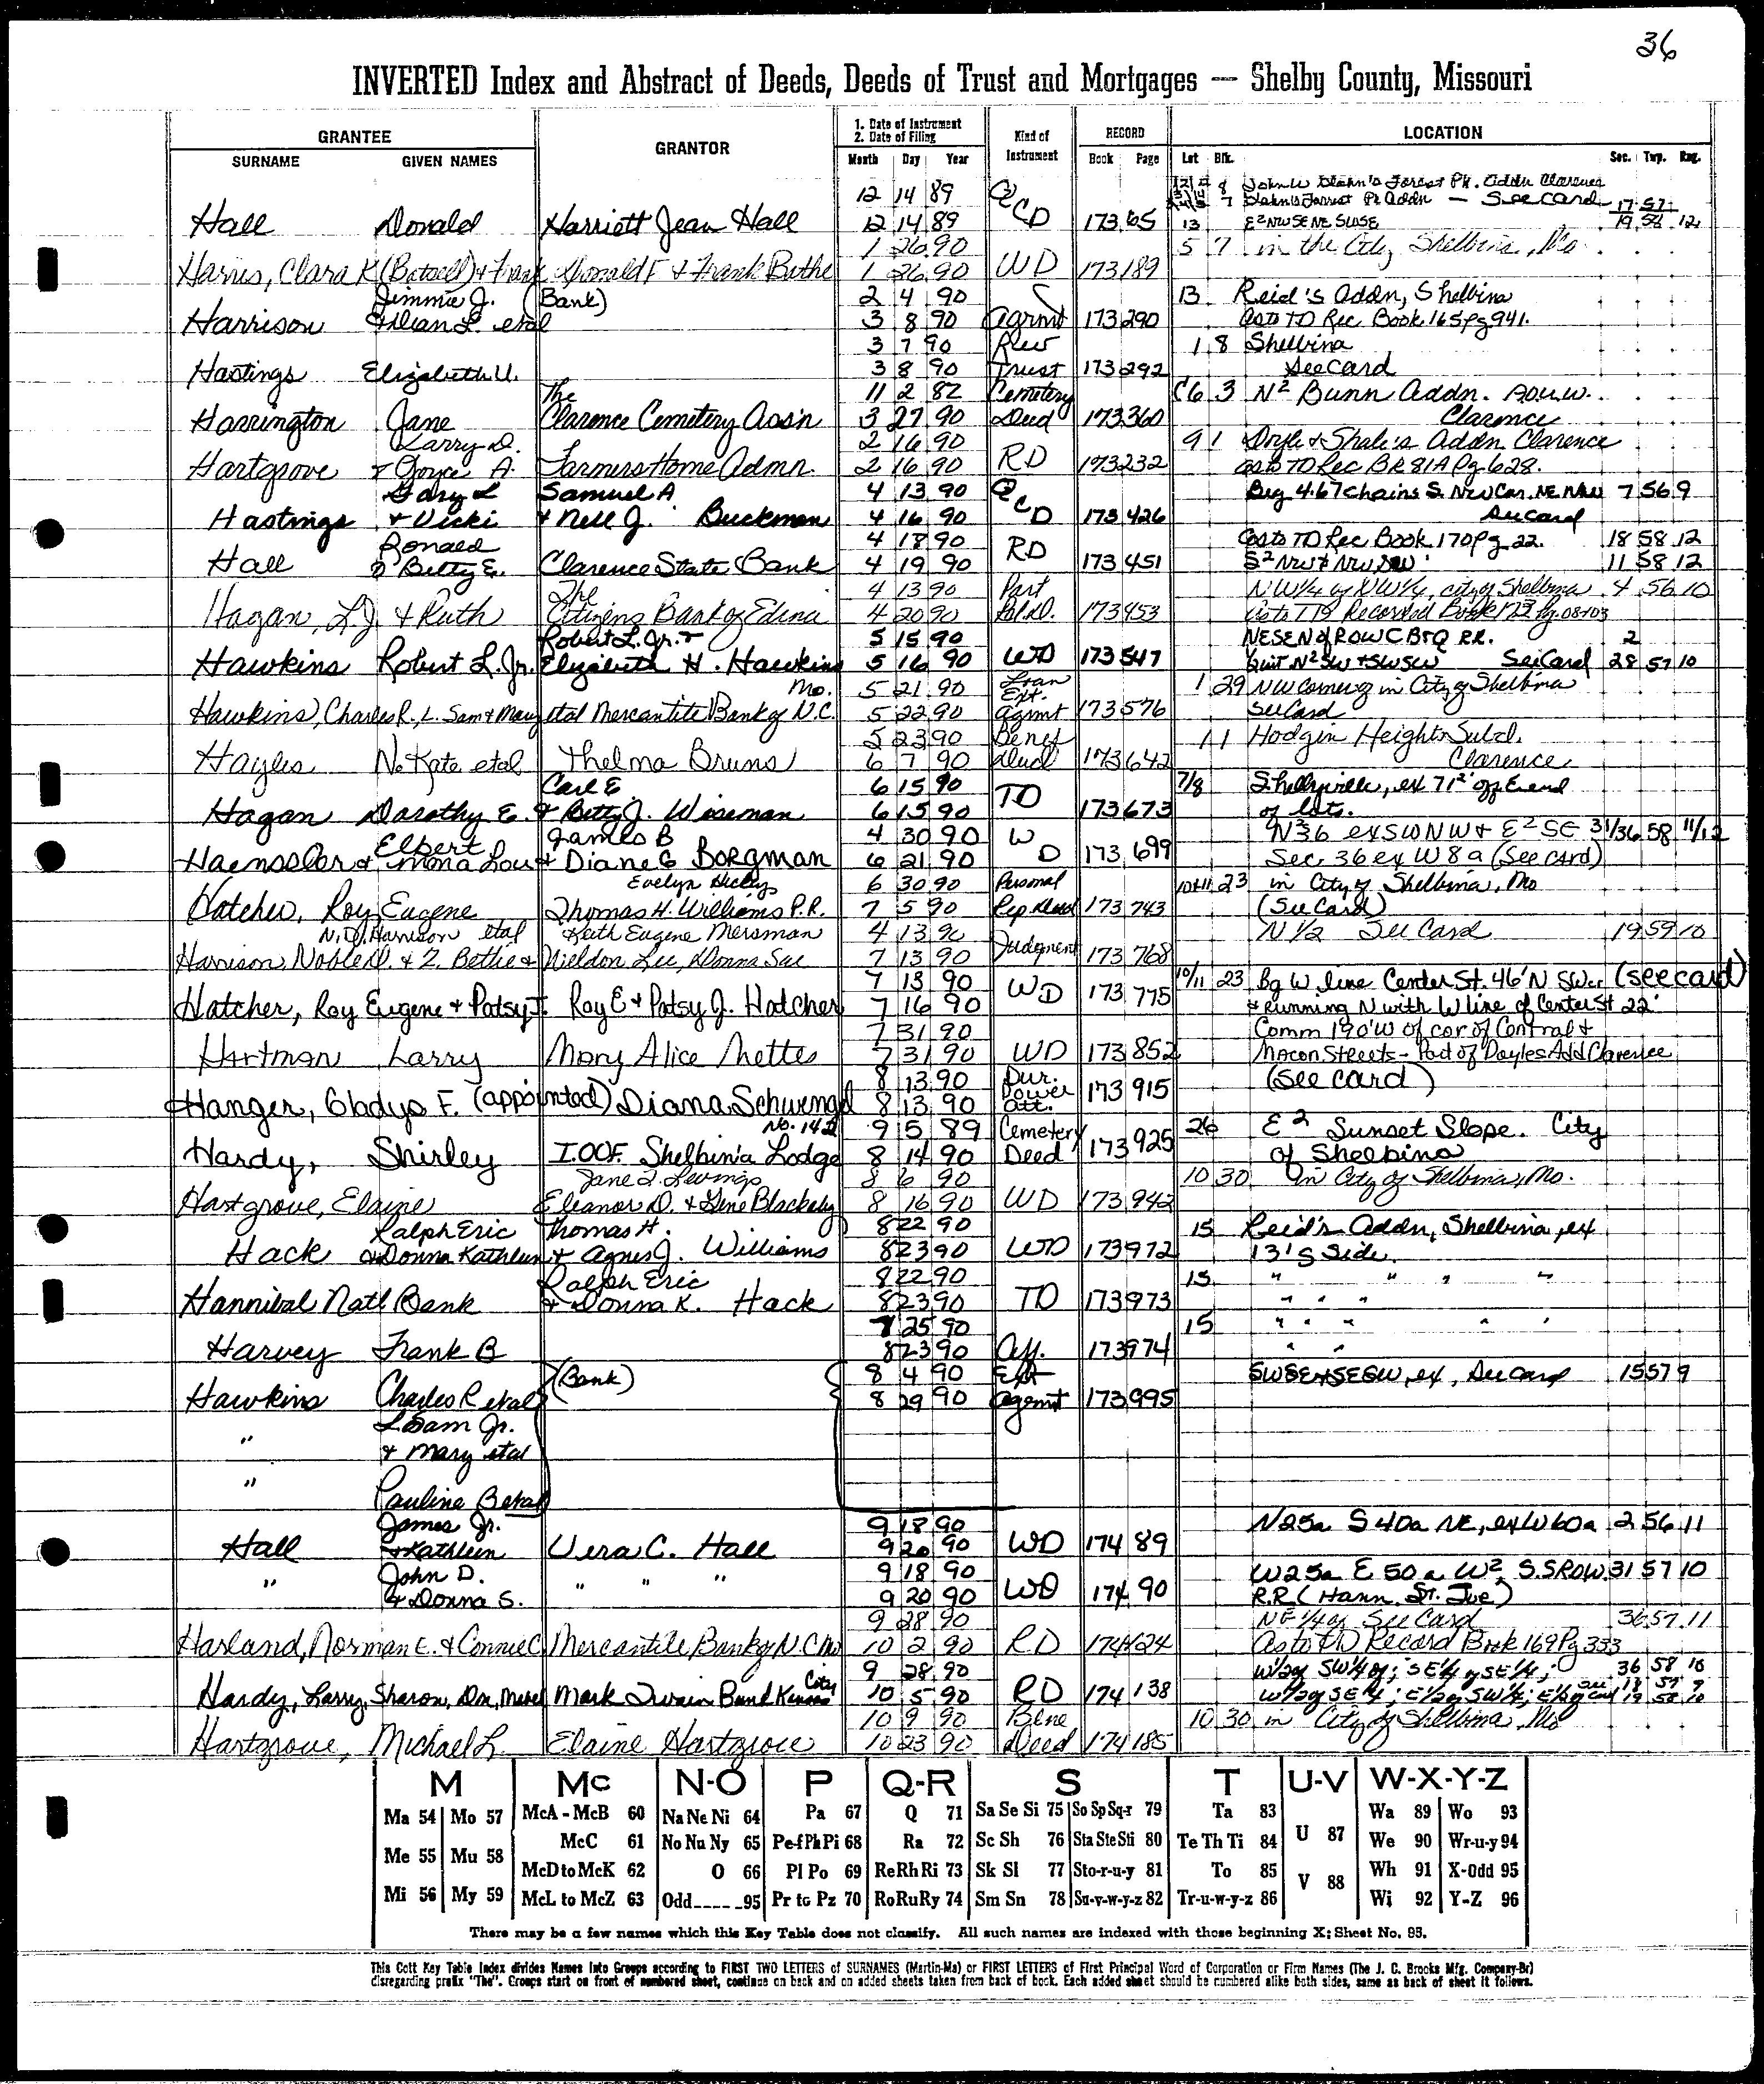 36
INVERTED Index and Abstract of Deeds, Deeds of Trust and Mortgages — Shelby County, Missouri
GRANTEE GRANTOR 1. Date of Instrument 2. Date of Filing Kind of Instrument RECORD LOCATION
SURNAME GIVEN NAMES Month Day Year Book Page Lot Blk. Sec. Twp. Rng.
12 14 89 Q 8 Forest Pk. Addn Clarence
7 Forrest Pk Addn — See card 17 57
Hall Donald Harriett Jean Hall 12 14 89 CD 173 65 13 E2 NWSE NE 19 58 12
1 26 90 5 7 in the City Shelbina, Mo
Harris, Clara K & Frank Donald F & Frank Bethe 1 26 90 WD 173 189
Jimmie J. (Bank) 2 4 90 13 Reid's Addn, Shelbina
Harrison & Lilian L. etal 3 8 90 Agrmt 173 290 as to TD Rec. Book 165 pg 941.
3 7 90 Rev 1 8 Shelbina
Hastings Elizabeth U. 3 8 90 Trust 173 292 See Card
The 11 2 82 Cemetery C6 3 N2 Bunn Addn. A.O.U.W.
Harrington Jane Clarence Cemetery Ass'n 3 27 90 Deed 173 360 Clarence
Larry D. 2 16 90 9 1 Doyle & Shale's Addn Clarence
Hartgrove & Joyce A. Farmers Home Admn. 2 16 90 RD 173 232 as to TD Rec BK 81A Pg 628.
Gary L Samuel A 4 13 90 Q Beg 4.67 chains S. NW Cor. NE NW 7 56 9
Hastings & Vicki & Nell J. Buckman 4 16 90 CD 173 426 See Card
Ronald 4 18 90 as to TD Rec Book 170 Pg 22. 18 58 12
Hall & Betty E. Clarence State Bank 4 19 90 RD 173 451 S2 NW & NW SW 11 58 12
The 4 13 90 Part NW1/4 of NW1/4, city of Shelbina 4 56 10
Hagan, L.J. & Ruth Citizens Bank of Edina 4 20 90 Rl.D. 173 453 as to TD Recorded Book 123
Robert L. Jr. & 5 15 90 NESE N of ROW C B&Q RR. 2
Hawkins Robert L. Jr. Elizabeth H. Hawkins 5 16 90 WD 173 547 N2SW & SWSW See Card 28 57 10
Mo. 5 21 90 Loan Ext. 1 29 NW corner of in City of Shelbina
Hawkins, Charles R., L. Sam & Mary etal Mercantile Bank of N.C. 5 22 90 Agrmt 173 576 See Card
5 23 90 Benef 1 1 Hodgin Heights Subd.
Hayles N. Kate etal Thelma Bruns 6 7 90 Deed 173 642 Clarence
Carl E. 6 15 90 7/8 Shelbyville, ex 71 2' off E end
Hagan Dorothy E. & Betty J. Wiseman 6 15 90 TD 173 673 of lots.
Elbert James B 4 30 90 W N 36 ex SW NW & E2 SE 31/36 58 11/12
Haenssler & Emma Lou & Diane G Borgman 6 21 90 D 173 699 Sec. 36 ex W 8 a (See card)
Evelyn Hickey 6 30 90 Personal 10&11 23 in City of Shelbina, Mo
Hatcher, Roy Eugene Thomas H. Williams P.R. 7 5 90 Rep Deed 173 743 (See Card)
N.D. Harrison etal Keith Eugene Mersman 4 13 90 N 1/2 See Card 19 59 10
Harrison Noble D. & Z. Bettie & Weldon Lee, Donna Sue 7 13 90 Judgment 173 768
7 13 90 10/11 23 Bg W line Center St. 46' N SWcr (see card)
Hatcher, Roy Eugene & Patsy J. Roy E & Patsy J. Hatcher 7 16 90 WD 173 775 & running N with W line of Center St 22'
7 31 90 Comm 190' W of cor of Central &
Hartman Larry Mary Alice Nettes 7 31 90 WD 173 852 Macon Streets - Part of Doyles Add Clarence
8 13 90 Dur. Power (See card)
Hanger, Gladys F. (appointed) Diana Schwengel 8 13 90 Att. 173 915
No. 142 9 5 89 Cemetery 26 E2 Sunset Slope. City
Hardy, Shirley I.O.O.F. Shelbina Lodge 8 14 90 Deed 173 925 of Shelbina
Jane L. Levings 8 6 90 10 30 In City of Shelbina, Mo.
Hartgrove, Elaine Eleanor D. & Gene Blackaby 8 16 90 WD 173 942
Ralph Eric Thomas H. 8 22 90 15 Reid's Addn, Shelbina, ex
Hack & Donna Kathleen & Agnes J. Williams 8 23 90 WD 173 972 13' S Side.
Ralph Eric 8 22 90 15 " " " "
Hannibal Natl Bank & Donna K. Hack 8 23 90 TD 173 973 " " "
25 90 15 " " " " "
Harvey Frank B 8 23 90 Aff. 173 974 " "
(Bank) 8 4 90 Ext SWSE & SESW, ex, See Card 15 57 9
Hawkins Charles R etal 8 29 90 Agemt 173 995
" L Sam Jr.
& Mary etal
" Pauline B etal
James Jr. 9 18 90 N25a S 40a NE, ex W60a 2 56 11
Hall & Kathleen Vera C. Hall 9 20 90 WD 174 89
" John D. " " " 9 18 90 W25a E 50a W2, S. SROW. 31 57 10
& Donna S. 9 20 90 WD 174 90 R.R. (Hann. St. Joe)
9 28 90 NE 1/4 of See Card 36 57 11
Harland, Norman E. & Connie C Mercantile Bank of N.C Mo 10 2 90 RD 174 124 As to TD Record Book 169 Pg 333
City 9 28 90 W1/2 of SW1/4 of; SE1/4 of SE1/4; 36 58 10
Hardy, Larry, Sharon, Don, Mark Twain Bank Kansas 10 5 90 RD 174 138 W1/2 of SE1/4; E1/2 of SW1/4; E1/2 of
10 9 90 Bene 10 30 in City of Shelbina, Mo
Hartgrove, Michael L. Elaine Hartgrove 10 23 90 Deed 174 185
M Mc N-O P Q-R S T U-V W-X-Y-Z
Ma 54 Mo 57 McA - McB 60 Na Ne Ni 64 Pa 67 Q 71 Sa Se Si 75 So Sp Sq-r 79 Ta 83 U 87 Wa 89 Wo 93
Me 55 Mu 58 McC 61 No Nu Ny 65 Pe-f Ph Pi 68 Ra 72 Sc Sh 76 Sta Ste Sti 80 Te Th Ti 84 We 90 Wr-u-y 94
McD to McK 62 O 66 Pl Po 69 Re Rh Ri 73 Sk Sl 77 Sto-r-u-y 81 To 85 V 88 Wh 91 X-Odd 95
Mi 56 My 59 McL to McZ 63 Odd 95 Pr to Pz 70 Ro Ru Ry 74 Sm Sn 78 Su-v-w-y-z 82 Tr-u-w-y-z 86 Wi 92 Y-Z 96
There may be a few names which this Key Table does not classify. All such names are indexed with those beginning X; Sheet No. 95.
This Cott Key Table Index divides Names into Groups according to FIRST TWO LETTERS of SURNAMES (Martin-Ma) or FIRST LETTERS of First Principal Word of Corporation or Firm Names (The J. C. Brooks Mfg. Company-Br)
disregarding prefix "The". Groups start on front of numbered sheet, continue on back and on added sheets taken from back of book. Each added sheet should be numbered alike both sides, same as back of sheet it follows.